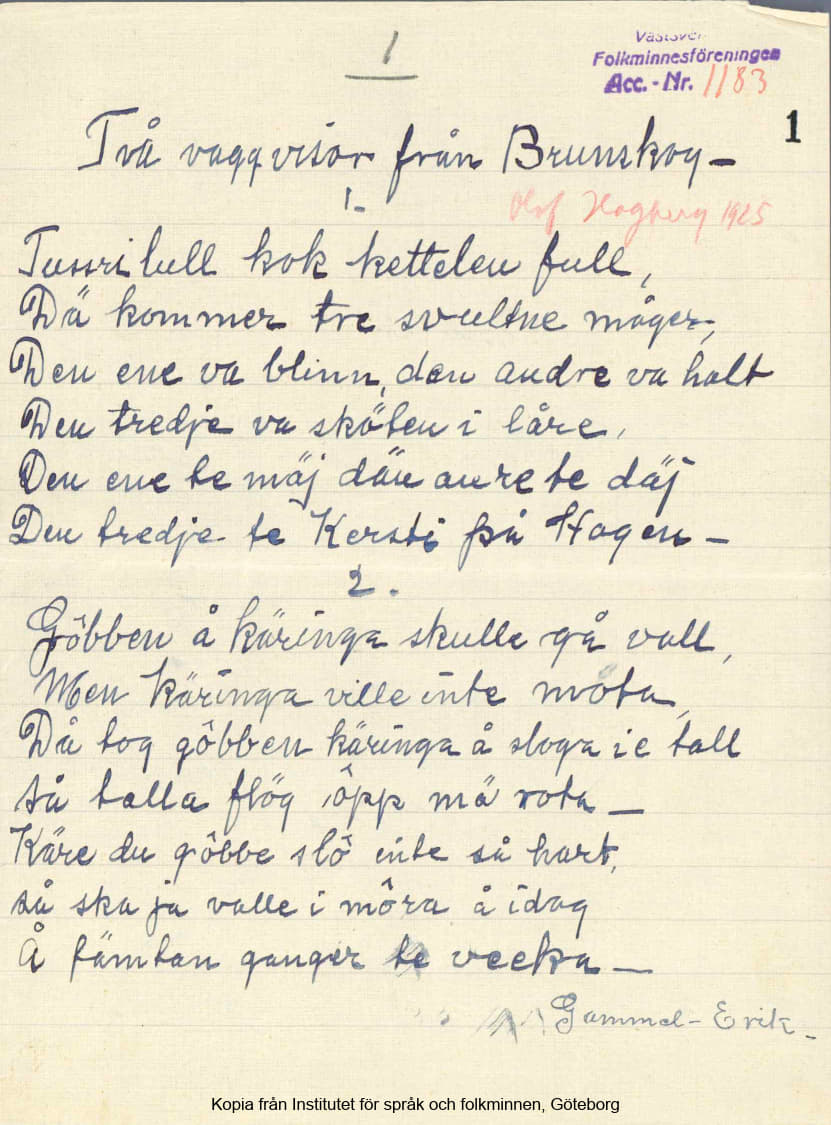 1
Västsve
Folkminnesföreningen
Acc. - Nr. 1183
1
Två vaggvisor från Brunskog –
1.
Olof Högberg 1925
Tussri lull kok kettelen full,
Dä kommer tre svultne måger,
Den ene va blinn, den andre va halt
Den tredje va sköten i låre,
Den ene te mäj dän anre te däj
Den tredje te Kersti på Hagen –
2.
Gôbben å käringa skulle gå vall,
Men käringa ville inte môta,
Då tog gôbben käringa å sloga i e tall
så talla flög ôpp mä rota –
Käre du gôbbe slô inte så hart,
så ska ja valle i môra å idag
Å fämtan ganger te vecka –
Gammel-Erik –
Kopia från Institutet för språk och folkminnen, Göteborg